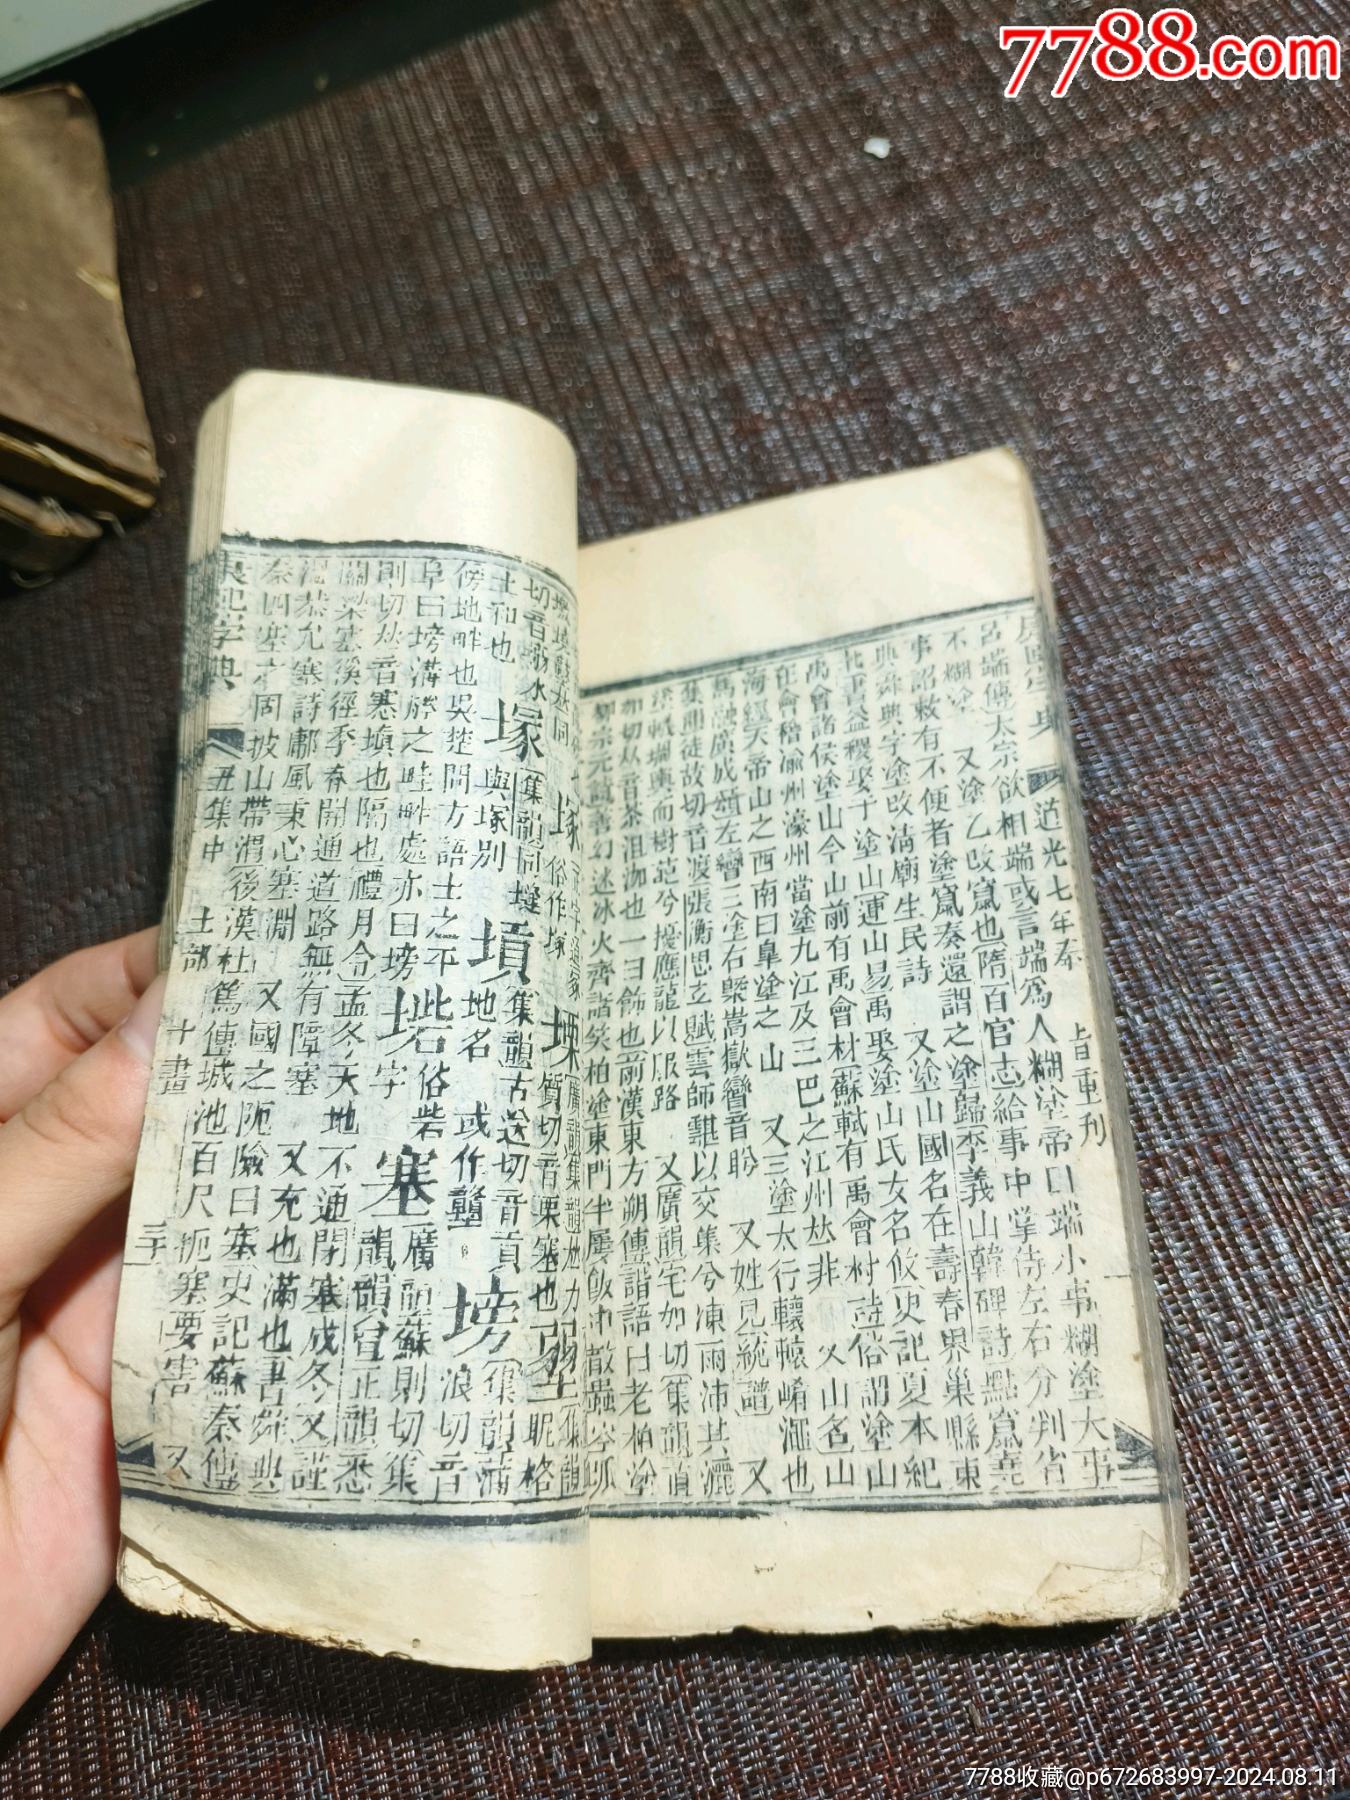 7788.com
康熙字典 道光七年奉 旨重刊
呂端傳太宗欲相端或言端爲人糊塗帝曰端小事糊塗大事
不糊塗 又塗乙改竄也隋百官志給事中掌侍左右分判省
事詔敕有不便者塗竄奏還謂之塗歸李義山韓碑詩點竄堯
典舜典字塗改淸廟生民詩 又塗山國名在壽春界巢縣東
北書益稷娶于塗山連山易禹娶塗山氏女名攸史記夏本紀
禹會諸侯塗山今山前有禹會村蘇軾有禹會村詩俗謂塗山
在會稽渝州濠州當塗九江及三巴之江州𠀤非 又山名山
海經天帝山之西南曰臯塗之山 又三塗太行轘轅崤澠也
馬融廣成頌左矕三塗右槩嵩嶽矕音盼 又姓見統譜 又
集韻徒故切音渡張衡思玄賦雲師䨴以交集兮凍雨沛其灑
塗蚸琱輿而樹葩兮擾應龍以服路 又廣韻宅加切集韻直
加切𠀤音茶沮洳也一曰飾也前漢東方朔傳諧語曰老柏塗
柳宗元
冰火齊諧笑柏塗東門牛屢飯中散蝨空爬
𠀤同 塚 俗作塚 塛 廣韻集韻𠀤力
質切音栗塞也 堊 集韻昵格
切音 水
土和也 塜 集韻同塳
與塚別 塡 集韻古送切音貢
地名 或作 塝 集韻蒲
浪切音
傍地畔也吳楚閒方語土之平
阜曰塝溝塍之畦畔處亦曰塝 塝字 俗砦 塞 廣韻蘇則切集
韻韻會正韻悉
則切𠀤音塞塡也隔也禮月令孟冬天地不通閉塞成冬又謹
關梁塞溪徑季春開通道路無有障塞 又充也滿也書舜典
溫恭允塞詩鄘風秉心塞淵 又國之阨險曰塞史記蘇秦傳
秦四塞之國披山帶渭後漢杜篤傳城池百尺扼塞要害 又
康熙字典 丑集中 土部 十畫 三十
7788收藏@p672683997-2024.08.11